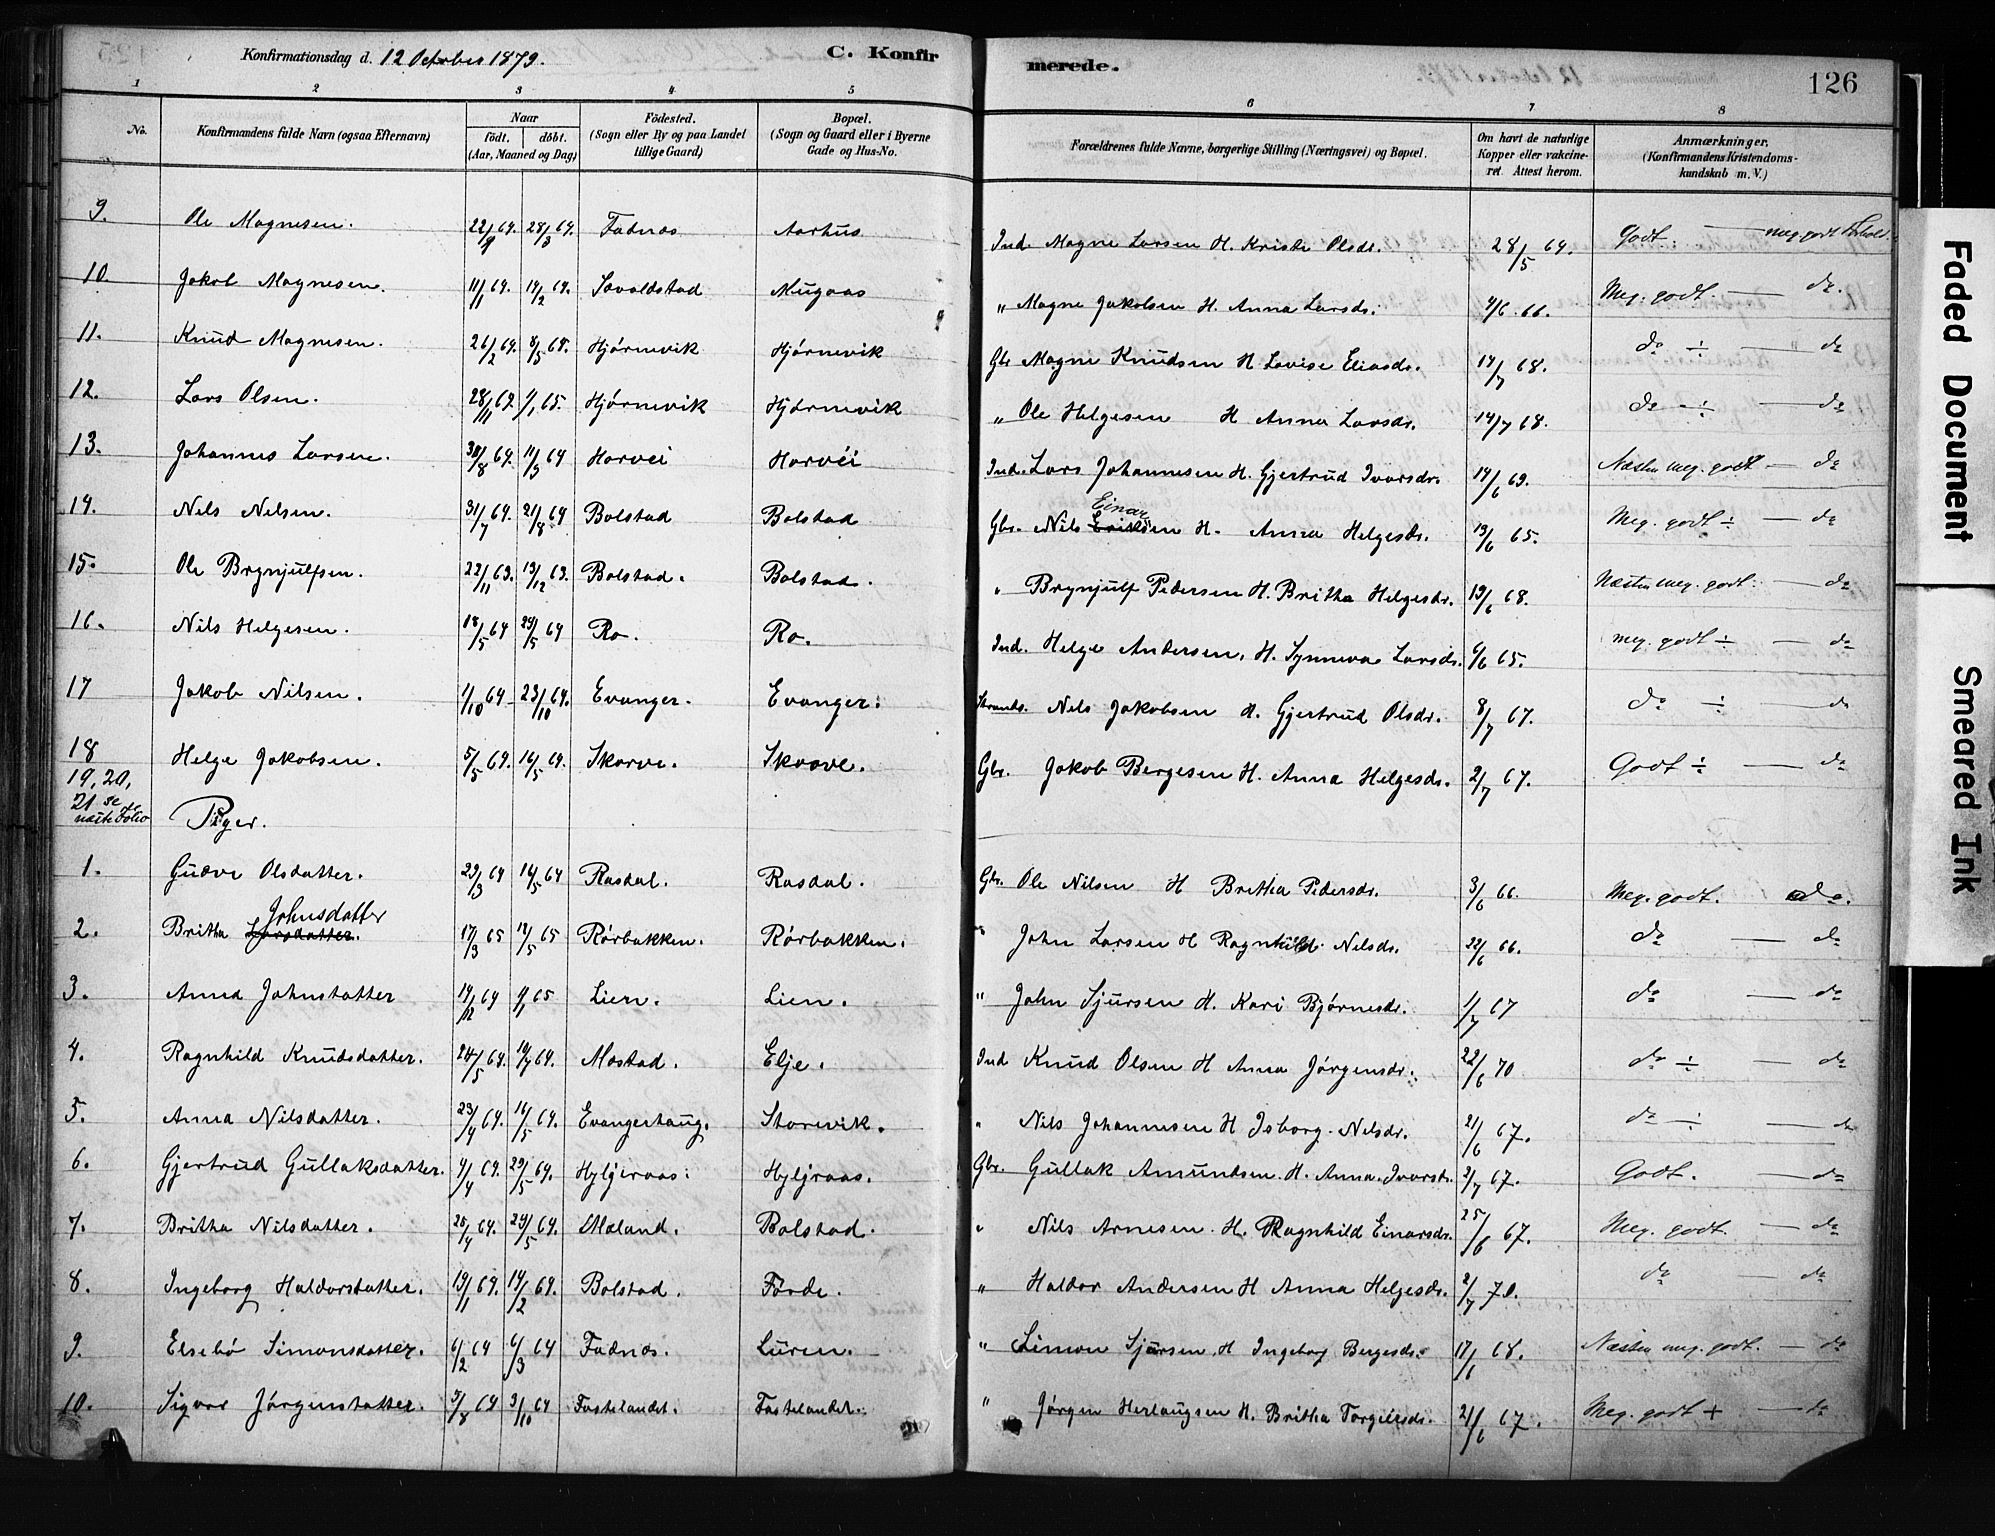 Konfirmationsdag d. 12 October 1879. C. Konfirmerede. 126
1 2 3 4 5 6 7 8
No. Konfirmandens fulde Navn (ogsaa Efternavn) Naar födt. döbt. (Aar, Maaned og Dag) Födested. (Sogn eller By og paa Landet tillige Gaard) Bopæl. (Sogn og Gaard eller i Byerne Gade og Hus-No. Forældrenes fulde Navne, borgerlige Stilling (Næringsvei) og Bopæl. Om havt de naturlige Kopper eller vakcineret Attest herom. Anmærkninger. (Konfirmandens Kristendomskundskab m. V.)
9. Ole Magnesen. 28/3 64. Fadnæs Aarhus Ind. Magne Larsen H. Kristi Olsdr. 28/5 64. Godt. — meg. godt Forhold.
10 Jakob Magnesen. 11/1 64. 14/2 64. Mugaas " Magne Jakobsen H. Anna Larsdr. 4/6 66. Meg. godt. — do.
11. Knud Magnesen. 26/2 64. 8/5 64. Hjörnevik Hjörnevik Gbr. Magne Knudsen H. Lovise Eliasdr. 14/7 68. do ÷ " do
12. Lars Olsen. 28/11 64. 1/1 65. Hjörnevik Hjörnevik " Ole Helgesen H Anna Larsdr. 14/7 68. do ÷ — do
13. Johannes Larsen. 11/9 64 Horvei Horvei Ind. Lars Johannesen H. Gjertrud Ivarsdr. 14/6 69. Næsten meg. godt — do
14. Nils Nilsen. 31/7 64. 21/8 64 Bolstad Bolstad Gbr. Nils Einarsen H. Anna Helgesdr. 19/6 65. Meg. godt ÷ — do
15. Ole Brynjulfsen. 22/11 63. 13/12 63. Bolstad. Bolstad. " Brynjulf Pedersen H. Britha Helgesdr. 19/6 68. Næsten meg. godt. — do
16. Nils Helgesen. 18/5 64 29/5 64 Ro. Ro. Ind. Helge Andersen. H. Synneva Larsdr. 6/6 65. meg. godt ÷ — do
17 Jakob Nilsen. 1/10 64 - 23/10 64. Evanger. Evanger. Strands. Nils Jakobsen H. Gjertrud Olsdr. 8/7 67. do ÷ — do
18 Helge Jakobsen. 5/5 64. 16/5 64. Skorve. Skorve. Gbr. Jakob Bergesen H. Anna Helgesdr. 2/7 67. Godt ÷ — do
19, 20,
21 se
næste Folio Piger.
1. Gudve Olsdatter. 29/3 64 16/5 64 Rasdal. Rasdal. Gbr. Ole Nilsen H Britha Pedersdr. 3/6 66. Meg. godt. do.
Johnsdatter
2. Britha Larsdatter. 17/3 65 14/5 65 Rörbakken. Rörbakken. " John Larsen H Ragnhild Nilsdr. 22/6 66. do — do
3. Anna Johnsdatter 14/12 64 1/1 65 Lien. Lien. " John Sjursen H. Kari Bjørnesdr. 1/7 67 do — do
4. Ragnhild Knudsdatter. 24/5 64. 10/7 64. Mostad. Elje. Ind Knud Olsen H Anna Jörgensdr. 22/6 70 do ÷ — do
5. Anna Nilsdatter. 23/4 64. 16/5 64. Evangerhaug. Storevik. " Nils Johannesen H Isborg Nilsdr. 21/6 67. do ÷ — do
6. Gjertrud Gullaksdatter. 4/4 64. 29/5 64. Hyljeraas. Hyljraas. Gbr. Gullak Amundsen. H. Anna Ivarsdr. 2/7 67. Godt. — do
7. Britha Nilsdatter. 25/4 64. 29/5 64. Mæland. Bolstad. " Nils Arnesen. H. Ragnhild Einarsdr. 25/6 67. Meg. godt. — do
8. Ingeborg Haldorsdatter. 19/1 64. 14/2 64. Bolstad. Förde. " Haldor Andersen H Anna Helgesdr. 2/7 70. do — do
9. Elsebö Simonsdatter. 6/2 64 6/3 64 Fadnæs. Luren. " Simon Sjursen H Ingeborg Bergesdr. 17/6 68. Næsten meg. godt. — do
10. Sigvor Jörgensdatter. 5/8 64 9/10 64 Fostelandet. Fostelandet. " Jörgen Herlaugsen H. Britha Torgilsdr. 21/6 67. Meg. godt + — do
Faded Document
Smeared Ink